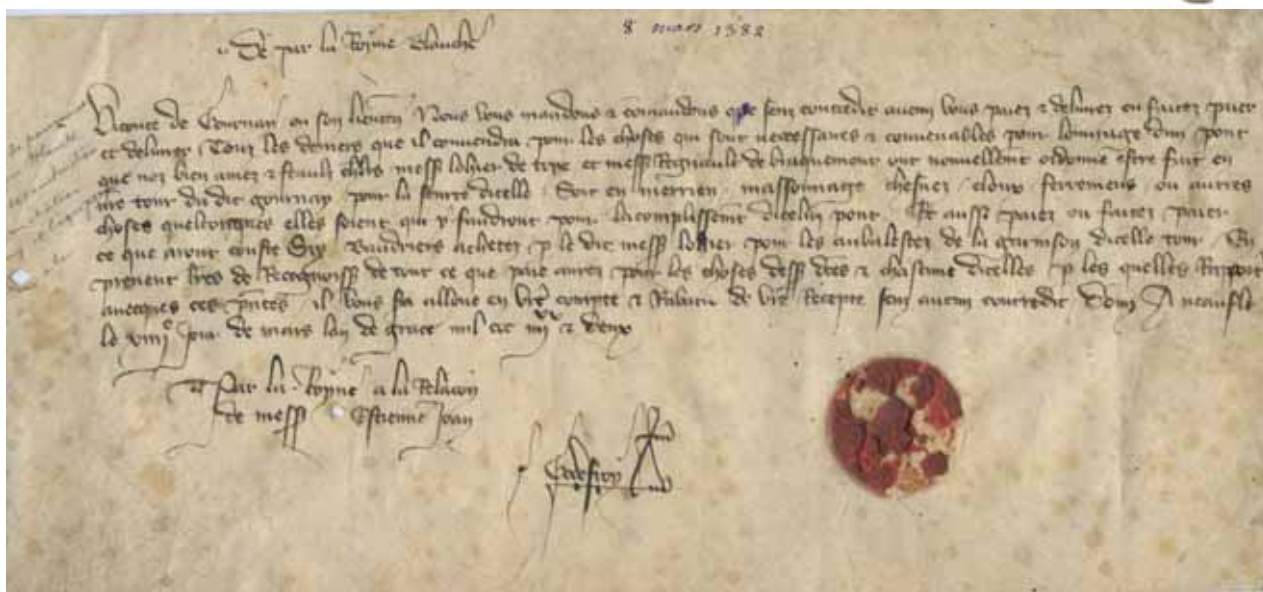 8 mars 1382
De par la Royne Blanche
Viconte de Gournay ou son lieuten Nous vous mandons & comandons que sens contredit aucun vous paiez & delivrez ou faitez paier
et delivrer Touz les deniers que il convendra pour les choses qui sont necessaires & convenables pour louvrage dun pont
que noz bien amez & feaulx chlrs mess lohier de trye et mess Regnault de braquemont ont nouvellemt ordonne estre fait en
nre tour du dit gournay pour la seurte dicelle Soit en merrien massonnage chesnes cloux ferremens ou autres
choses quelconques elles soient qui y faudront pour lacomplissemt dicelui pont Et aussi paiez ou faitez paier
ce que aront couste Six Baudriers achetez p le dit mess lohier pour les arbalestes de la garnison dicelle tour En
prenent lres de Recognoiss de tout ce que paie aurez pour les choses dess dtes & chascune dicelles p les quelles Rapport
avecques ces pntes il vous sa alloue en vre compte & Rabatu de vre Recepte sens aucun contredit Donn A neaufle
le viii jour de mars lan de grace mil ccc iiii xx & deux
Par la Royne a la Relacion
de mess Estienne Joan
Godefroy